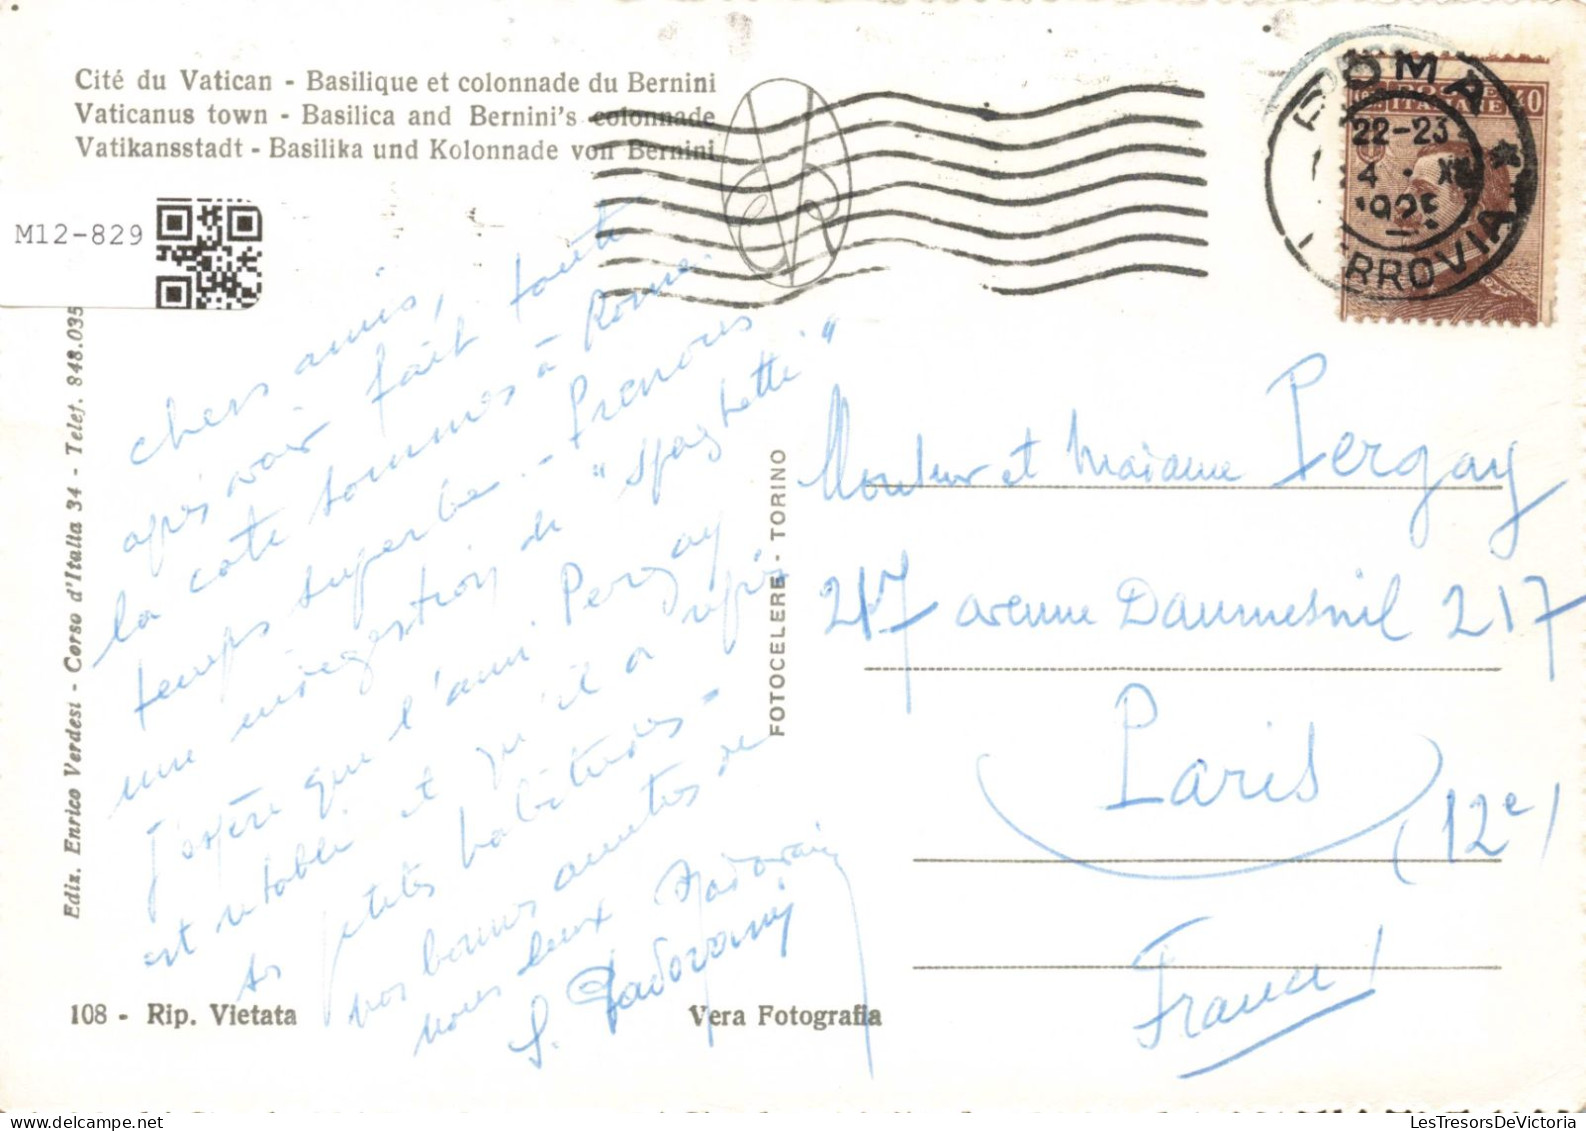 Cité du Vatican - Basilique et colonnade du Bernini
Vaticanus town - Basilica and Bernini's colonnade
Vatikansstadt - Basilika und Kolonnade von Bernini
M12-829
ROMA
22-23
4 · XII
FERROVIA
40
chers amis,
après avoir fait toute
la cote sommes à Rome.
temps superbe. - Prenons
une indigestion de "spaghetti"
J'espère que l'ami Pergay
est rétabli et qu'il a repris
ses petites habitudes -
nos bonnes amitiés de
nous deux Padovani
S. Padovani
Monsieur et Madame Pergay
217 avenue Daumesnil 217
Paris
(12e)
France
Ediz. Enrico Verdesi - Corso d'Italia 34 - Telef. 848.035
FOTOCELERE - TORINO
108 - Rip. Vietata
Vera Fotografia
LesTresorsDeVictoria